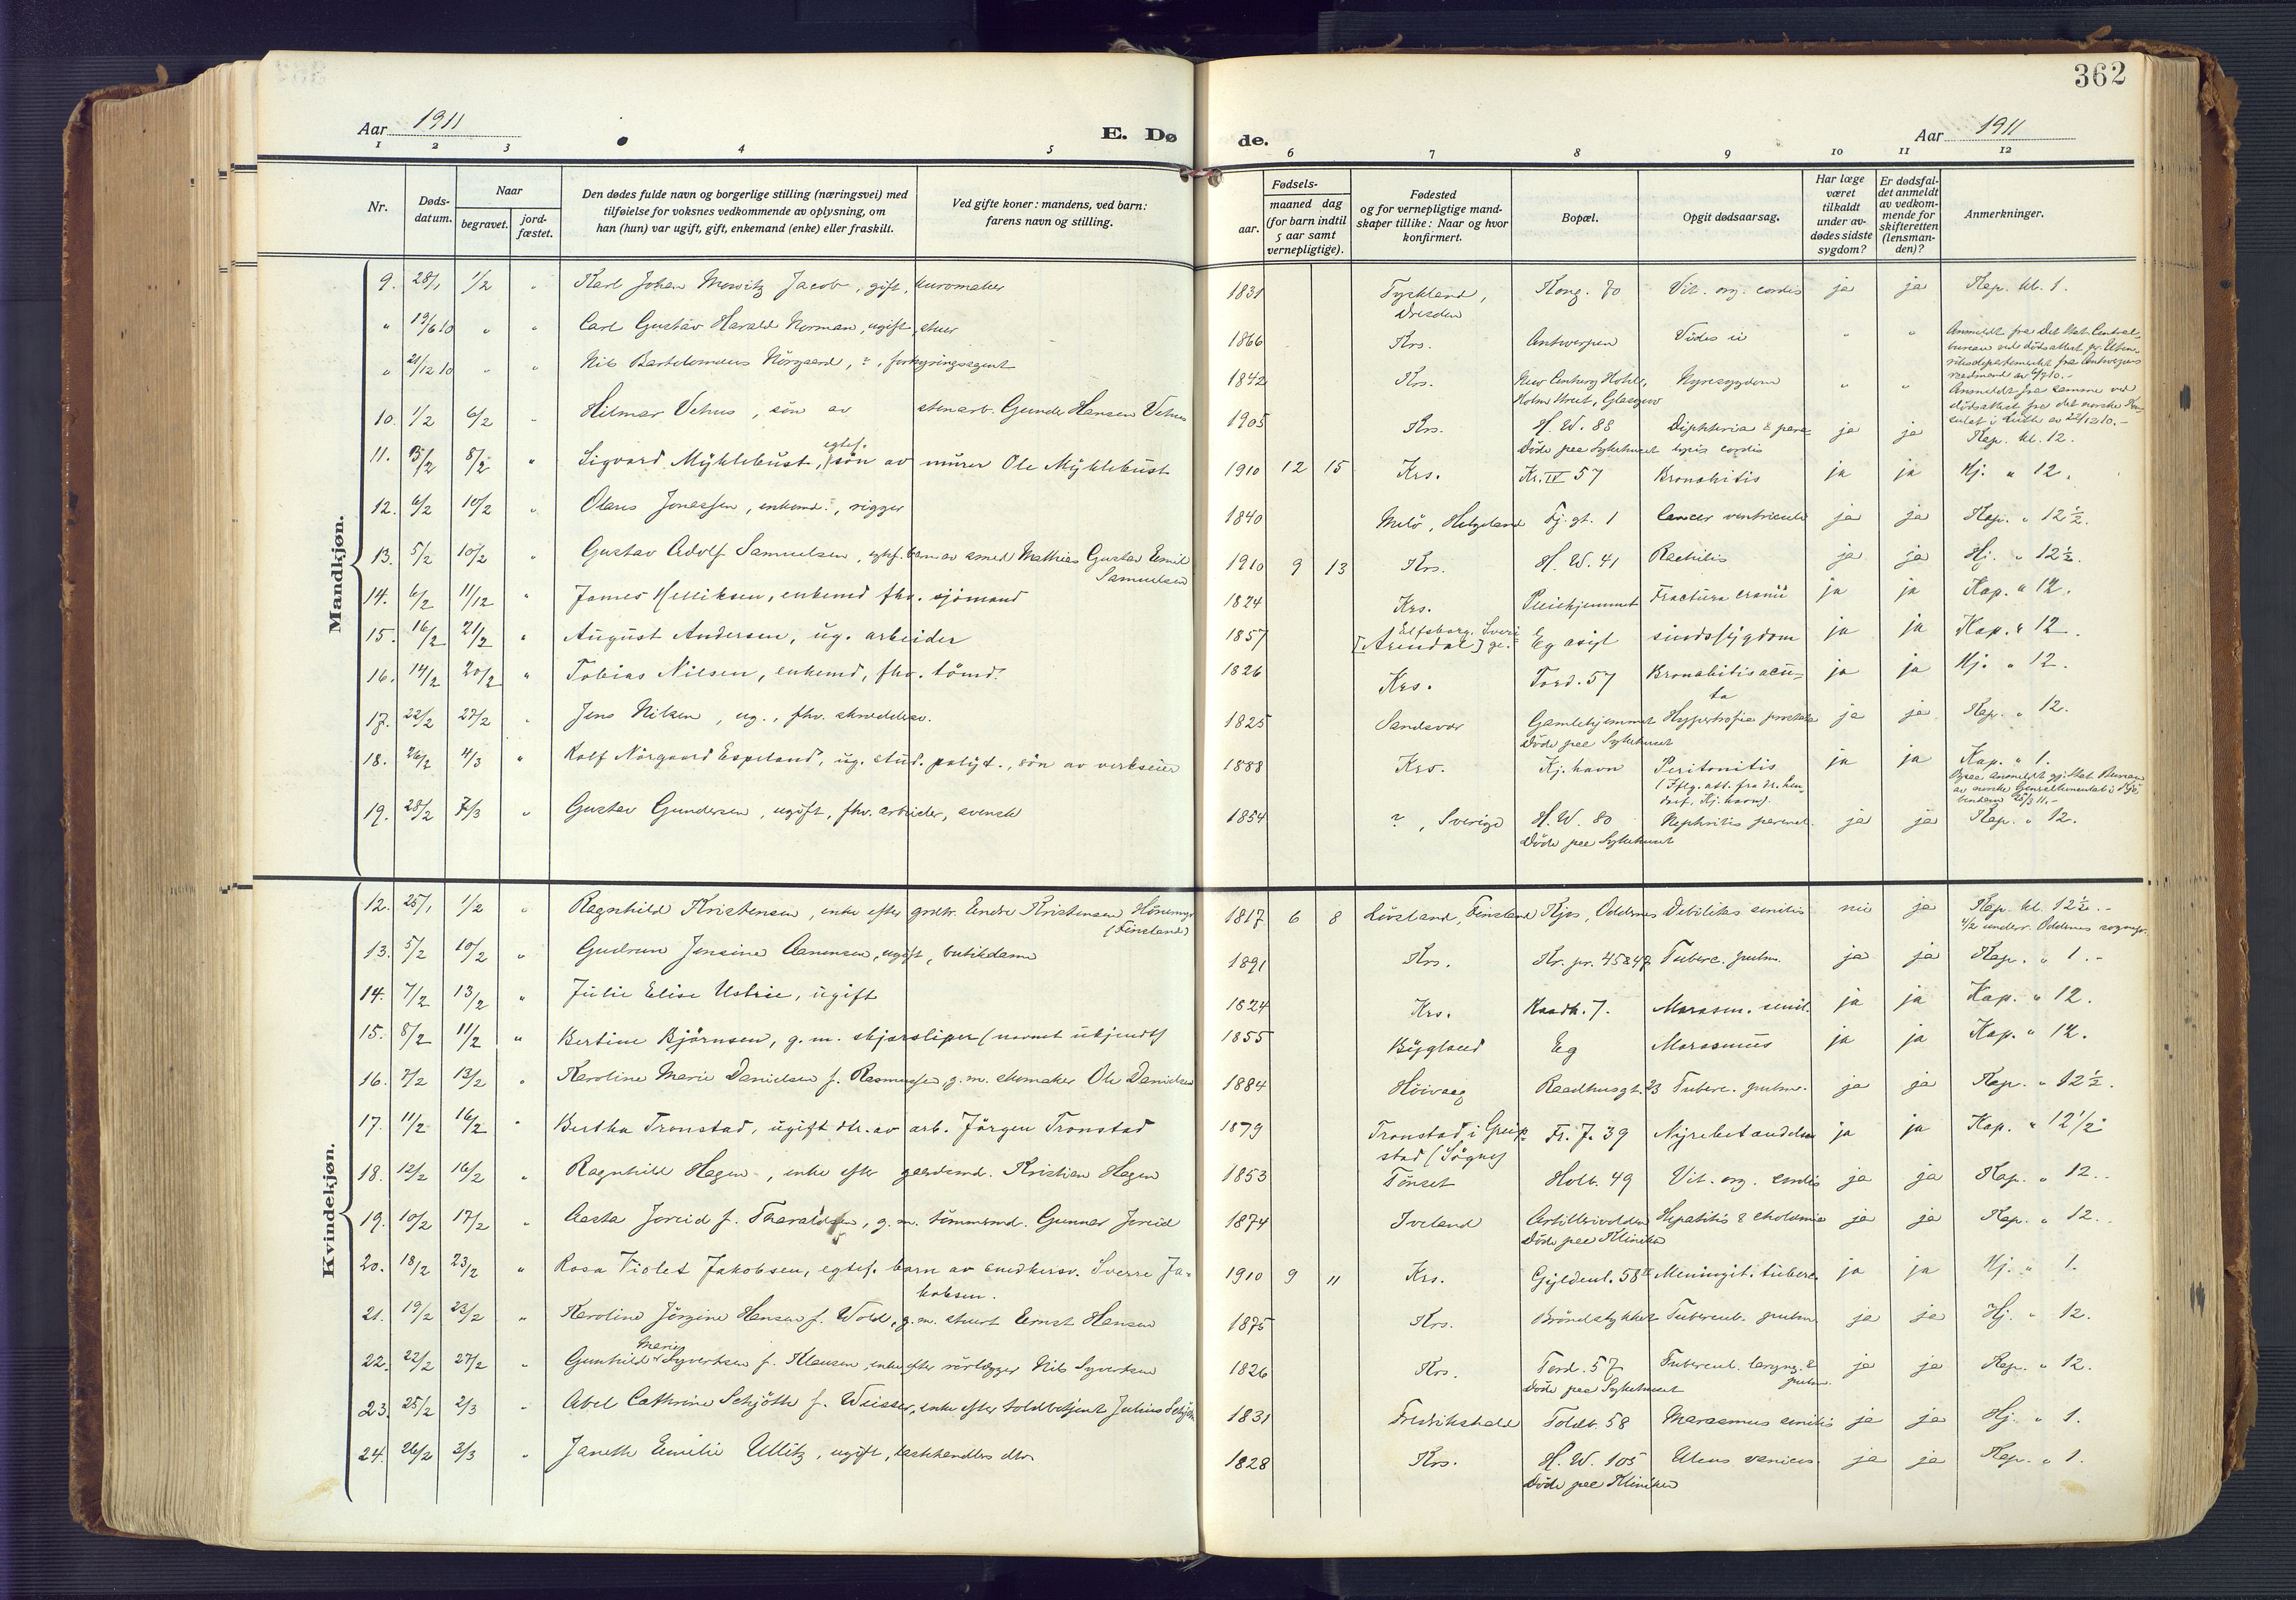 362
Aar 1911
E. Dø
de.
Aar 1911
1 2 3 4 5 6 7 8 9 10 11 12
Nr.
Døds-
datum.
Naar
begravet.
jord-
fæstet.
Den dødes fulde navn og borgerlige stilling (næringsvei) med
tilføielse for voksnes vedkommende av oplysning, om
han (hun) var ugift, gift, enkemand (enke) eller fraskilt.
Ved gifte koner: mandens, ved barn:
farens navn og stilling.
Fødsels-
aar.
maaned dag
(for barn indtil
5 aar samt
vernepligtige).
Fødested
og for vernepligtige mand-
skaper tillike: Naar og hvor
konfirmert.
Bopæl.
Opgit dødsaarsag.
Har læge
været
tilkaldt
under av-
dødes sidste
sygdom?
Er dødsfal-
det anmeldt
av vedkom-
mende for
skifteretten
(lensman-
den)?
Anmerkninger.
Mandkjøn.
9. 28/1 1/2 " Karl Johan Jacob, gift, 1831 Tyskland, Dresden Kong. 70 Vit. org. cordis ja ja Kap. kl. 1.
" 19/6 10 " " Carl Gustav Harald Norman, ugift, stuer 1866 Krs. Antwerpen Vides ei " "
Anmeldt fra Det Stat. Central-
bureau ved dødsattest fr. Uten-
riksdepartementet fra Antwerpen
" 21/12 10 " " Nils Bartolomæus Nörgaard, ?, forhyringsagent 1842 Krs. Holm Street, Glasgow Nyresygdom " "
Anmeldt fra samme ved
dødsattest fra det norske Kon-
sulat i Leith av 22/12 10.-
10. 1/2 6/2 " Hilmar Vehus, søn av stenarb. Gunder Hansen Vehus 1905 Krs. H. W. 88 Diphtheria & para-
Döde paa Sykehuset lysis cordis ja ja Kap. kl. 12.
11. 5/2 8/2 " Sigvard Myklebust, egtef. søn av murer Ole Myklebust 1910 12 15 Krs. Kr. IV 57 Bronchitis ja ja Hj. " 12.
12. 6/2 10/2 " Olaus Jonassen, enkemd., rigger 1840 Melö, Helgeland Fj. gt. 1 Cancer ventriculi ja ja Kap. " 12 1/2.
13. 5/2 10/2 " Gustav Adolf Samuelsen, egtef. barn av smed Mathias Gustav Emil
Samuelsen 1910 9 13 Krs. H. W. 41 Rachitis ja ja Hj. " 12 1/2.
14. 6/2 11/12 " James Helliksen, enkemd fhv. sjömand 1824 Krs. Pleiehjemmet Fractura cranii ja ja Kap. " 12.
15. 16/2 21/2 " August Andersen, ug. arbeider 1857 Elfsborg, Sveri-
[Arendal] ge. Eg asyl sindssygdom ja ja Kap. " 12.
16. 14/2 20/2 " Tobias Nilsen, enkemd, fhv. tömd. 1826 Krs. Tord. 57 Bronchitis acu-
ta ja ja Hj. " 12.
17. 22/2 27/2 " Jens Nilsen, ug., fhv. skræddersv. 1825 Sandsvær Gamlehjemmet Hypertrofia prostatæ ja ja Kap. " 12.
Döde paa Sykehuset
18. 26/2 4/3 " Rolf Nörgaard Espeland, ug. stud. polyt., søn av verkseier 1888 Krs. Kj.havn Peritonitis ja ja Kap. " 1.
19. 28/2 7/3 " Gustav Gundersen, ugift, fhv. arbeider, svensk 1854 ?, Sverige H. W. 80 Nephritis parench. ja ja Kap. " 12.
Döde paa Sykehuset
Kvindekjøn.
12. 25/1 1/2 " Ragnhild Kristensen, enke efter grdbr. Endre Kristensen Hönemyr
(Finsland) 1817 6 8 Lövland, Finsland Kjos, Oddernes Debilitas senilis nei ja Kap. kl. 12 1/2.-
4/2 underr. Oddernes sognepr.
13. 5/2 10/2 " Gudrun Jensine Aanensen, ugift, butikdame 1891 Krs. Kr. pr. 45&47 Tuberc. pulm. ja ja Kap. " 1.-
14. 7/2 13/2 " Julie Elise Ustrie, ugift 1824 Krs. Raadh. 7. Marasm. senil. ja ja Kap. " 12.
15. 8/2 11/2 " Bertine Björnsen, g. m. skjærsliper (navnet ukjendt) 1855 Bygland Eg Marasmus ja ja Kap. " 12.
16. 7/2 13/2 " Karoline Marie Danielsen f. Rasmussen, g. m. skomaker Ole Danielsen 1884 Höivaag Raadhusgt. 23 Tuberc. pulm. ja ja Kap. " 12 1/2.
17. 11/2 16/2 " Bertha Tronstad, ugift dtr. av arb. Jörgen Tronstad 1879 Tronstad i Greip-
stad (Sögne) Fr. 7. 39 Nyrebetændelse ja ja Kap. " 12 1/2
18. 12/2 16/2 " Ragnhild Hagen, enke efter gaardmd. Kristian Hagen 1853 Tönset Holb. 49 Vit. org. cordis ja ja Kap. " 12.
19. 10/2 17/2 " Aasta Joreid f. Taaraldsen, g. m. tömmermd. Gunnar Joreid 1874 Iveland Artillerivolden Hepatitis & cholæmia ja ja Kap. " 12.
Döde paa Kliniken
20. 18/2 23/2 " Rosa Violet Jakobsen, egtef. barn av snedkersv. Sverre Ja-
kobsen. 1910 9 11 Krs. Gyldenl. 58 Meningit. tuberc. ja ja Hj. " 1.
21. 19/2 23/2 " Karoline Jörgine Hansen f. Wold, g. m. stuert Ernst Hansen 1875 Krs. Bröndstykket Tubercul. pulm. ja ja Hj. " 12.
22. 22/2 27/2 " Gunhild Marie Syvertsen f. Klausen, enke efter rörlægger Nils Syvertsen 1826 Krs. Tord. 57 Tubercul. laryng. &
pulm. ja ja Kap. " 12.
Döde paa Sykehuset
23. 25/2 2/3 " Abel Cathrine Schjöth f. Weisser, enke efter toldbetjent Julius Schjöth 1831 Fredrikshald Toldb. 58 Marasmus senilis ja ja Hj. " 1.
24. 26/2 3/3 " Janeth Emilie Ullitz, ugift, dtr. 1828 Krs. H. W. 105 Ulcus ja ja Kap. " 1.
Döde paa Kliniken